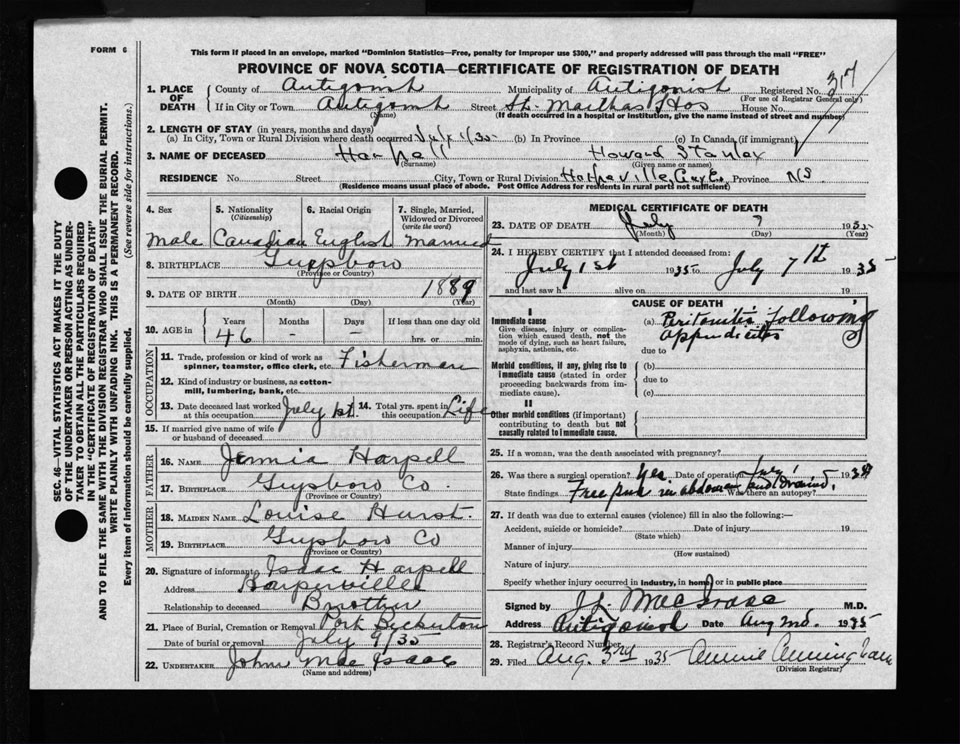 FORM 6
This form if placed in an envelope, marked "Dominion Statistics—Free, penalty for improper use $300," and properly addressed will pass through the mail "FREE"
PROVINCE OF NOVA SCOTIA—CERTIFICATE OF REGISTRATION OF DEATH
1. PLACE OF DEATH
County of Antigonish Municipality of Antigonish Registered No. 317
(For use of Registrar General only)
If in City or Town Antigonish Street St. Marthas Hos House No.
(Name) (If death occurred in a hospital or institution, give the name instead of street and number)
2. LENGTH OF STAY (in years, months and days)
(a) In City, Town or Rural Division where death occurred July 1/35 (b) In Province (c) In Canada (if immigrant)
3. NAME OF DECEASED Harpell Howard Stanley
(Surname) (Given name or names)
RESIDENCE No. Street City, Town or Rural Division Province NS
(Residence means usual place of abode. Post Office Address for residents in rural parts not sufficient)
4. Sex
5. Nationality (Citizenship)
6. Racial Origin
7. Single, Married, Widowed or Divorced (write the word)
Male Canadian English Married
8. BIRTHPLACE Guysboro
(Province or Country)
9. DATE OF BIRTH 1889
(Month) (Day) (Year)
10. AGE in Years Months Days If less than one day old
46 - hrs. or min.
OCCUPATION
11. Trade, profession or kind of work as spinner, teamster, office clerk, etc. Fisherman
12. Kind of industry or business, as cotton-mill, lumbering, bank, etc.
13. Date deceased last worked at this occupation July 1st. 14. Total yrs. spent in this occupation Life
15. If married give name of wife or husband of deceased
FATHER
16. NAME Harpell
17. BIRTHPLACE Guysboro Co.
(Province or Country)
MOTHER
18. MAIDEN NAME Louise Hurst.
19. BIRTHPLACE Guysboro Co
(Province or Country)
20. Signature of informant Isaac Harpell
Address Harperville
Relationship to deceased Brother
21. Place of Burial, Cremation or Removal Port Bickerton
Date of burial or removal July 9/35
22. UNDERTAKER John Mac Isaac
(Name and address)
MEDICAL CERTIFICATE OF DEATH
23. DATE OF DEATH July 7 1935
(Month) (Day) (Year)
24. I HEREBY CERTIFY that I attended deceased from:
July 1st 1935 to July 7th 1935
and last saw h alive on 19
CAUSE OF DEATH
I
Immediate cause
Give disease, injury or complication which caused death, not the mode of dying, such as heart failure, asphyxia, asthenia, etc.
(a) Peritonitis following
Appendicitis
due to
Morbid conditions, if any, giving rise to immediate cause (stated in order proceeding backwards from immediate cause).
(b)
due to
(c)
II
Other morbid conditions (if important) contributing to death but not causally related to immediate cause.
25. If a woman, was the death associated with pregnancy?
26. Was there a surgical operation? Yes Date of operation July 1 193
State findings Free pus in abdomen and drained. Was there an autopsy?
27. If death was due to external causes (violence) fill in also the following:—
Accident, suicide or homicide? Date of injury 19
(State which)
Manner of injury
(How sustained)
Nature of injury
Specify whether injury occurred in industry, in home, or in public place
Signed by M.D.
Address Antigonish Date Aug 2nd. 1935
28. Registrar's Record Number
29. Filed Aug. 3rd 1935 Annie Cunningham
(Division Registrar)
SEC. 46—VITAL STATISTICS ACT MAKES IT THE DUTY
OF THE UNDERTAKER OR PERSON ACTING AS UNDER-
TAKER TO OBTAIN ALL THE PARTICULARS REQUIRED
IN THE "CERTIFICATE OF REGISTRATION OF DEATH"
AND TO FILE THE SAME WITH THE DIVISION REGISTRAR WHO SHALL ISSUE THE BURIAL PERMIT.
WRITE PLAINLY WITH UNFADING INK. THIS IS A PERMANENT RECORD.
Every item of information should be carefully supplied. (See reverse side for instructions.)